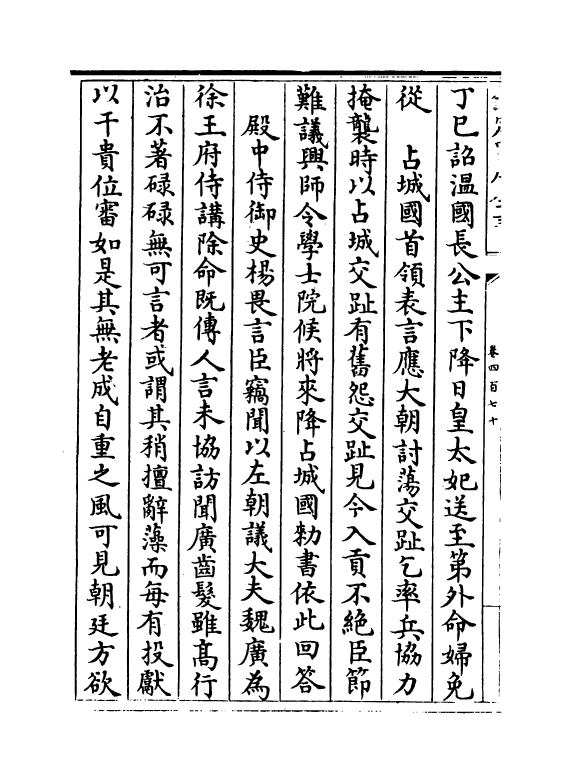 卷四百七十
丁巳詔溫國長公主下降日皇太妃送至第外命婦免
從　占城國首領表言應大朝討蕩交趾乞率兵協力
掩襲時以占城交趾有舊怨交趾見今入貢不絕臣節
難議興師令學士院候將來降占城國勑書依此回答
殿中侍御史楊畏言臣竊聞以左朝議大夫魏廣為
徐王府侍講除命既傳人言未協訪聞廣齒髮雖髙行
治不著碌碌無可言者或謂其稍擅辭藻而每有投獻
以干貴位審如是其無老成自重之風可見朝廷方欲